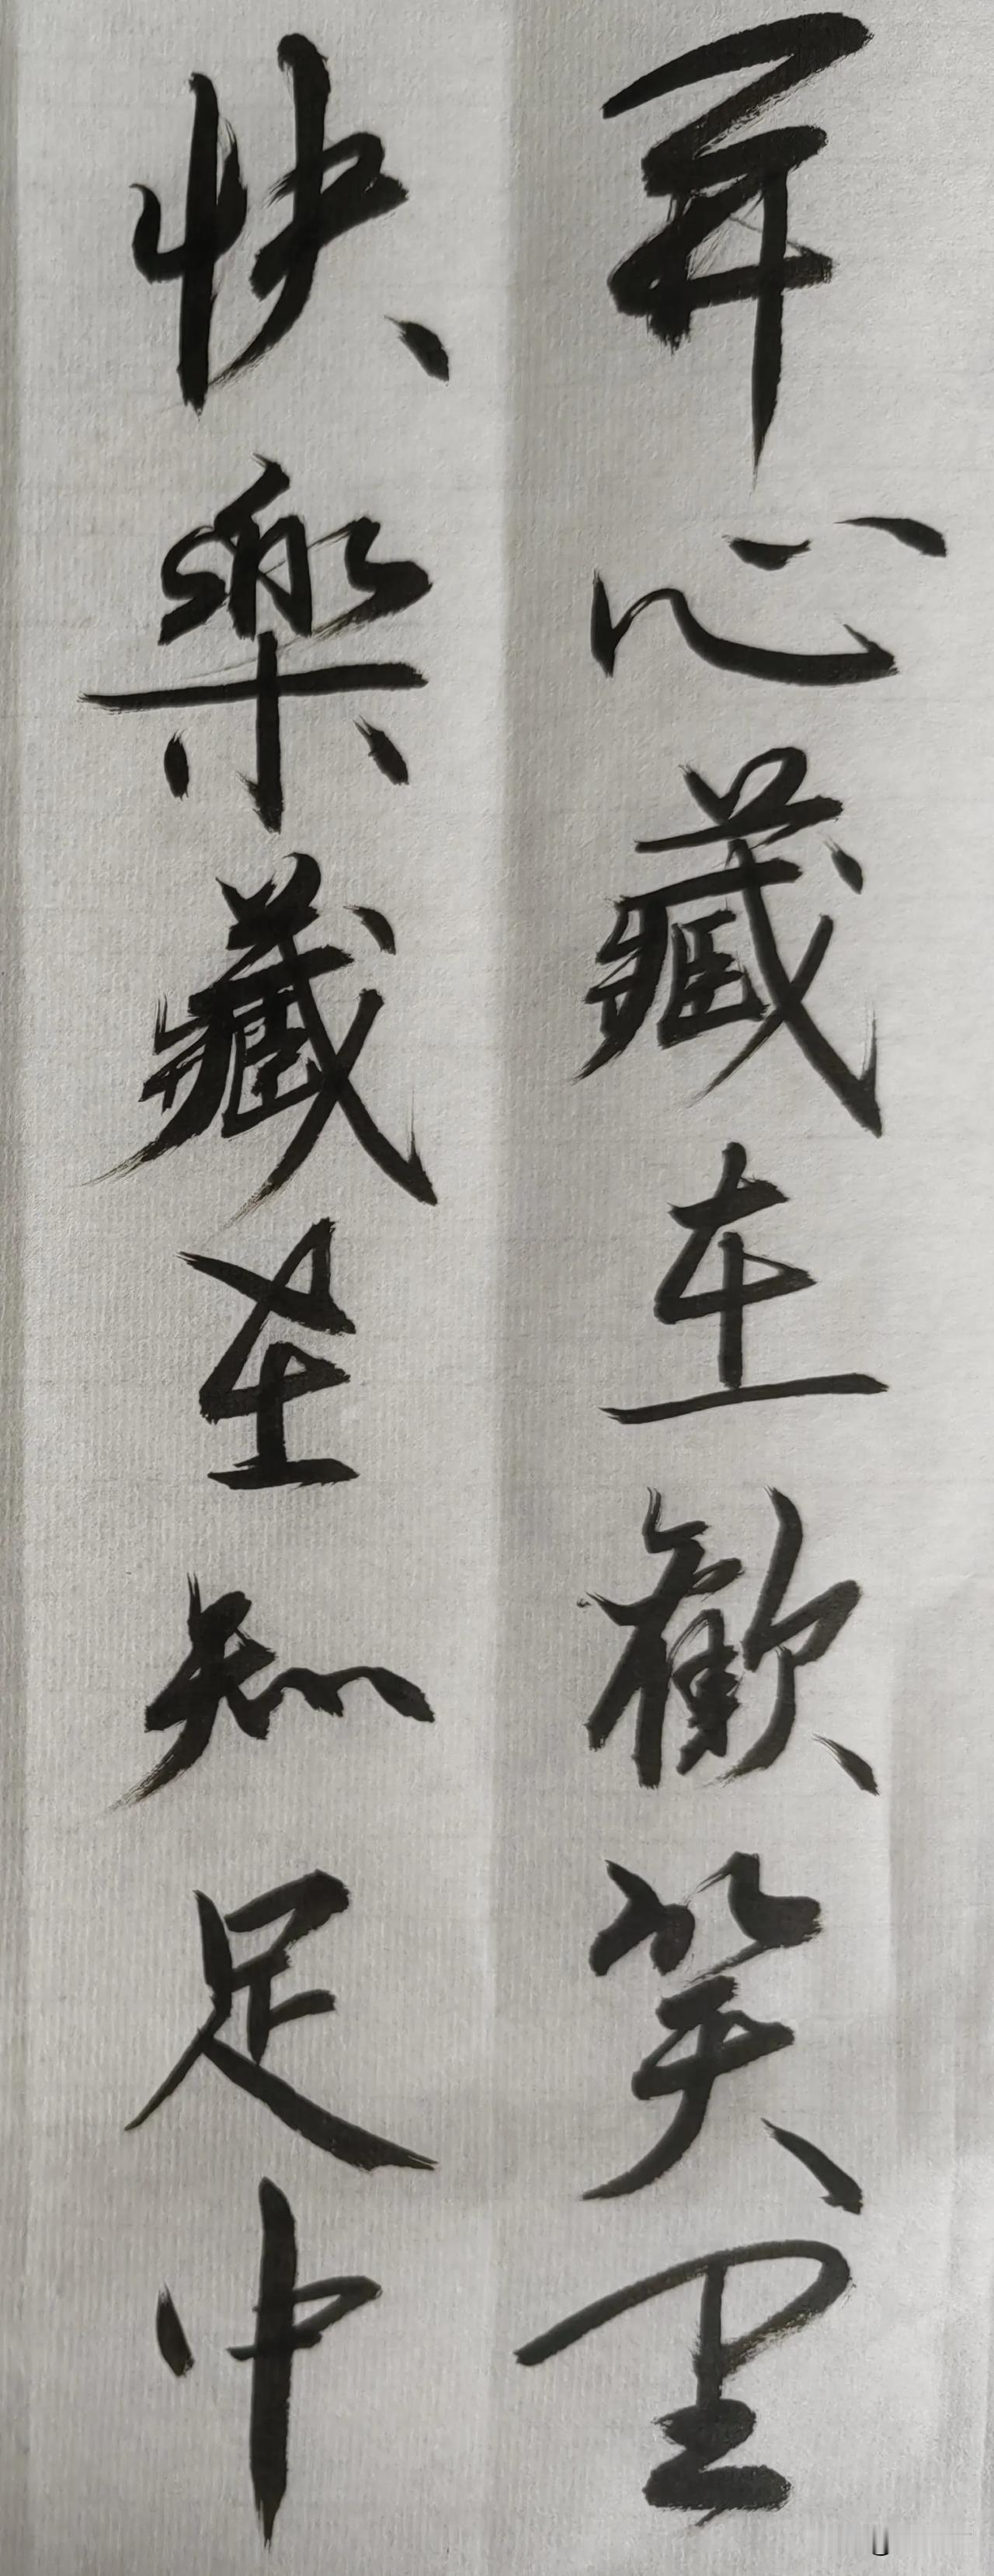 开心藏在歡笑里
快樂藏在知足中